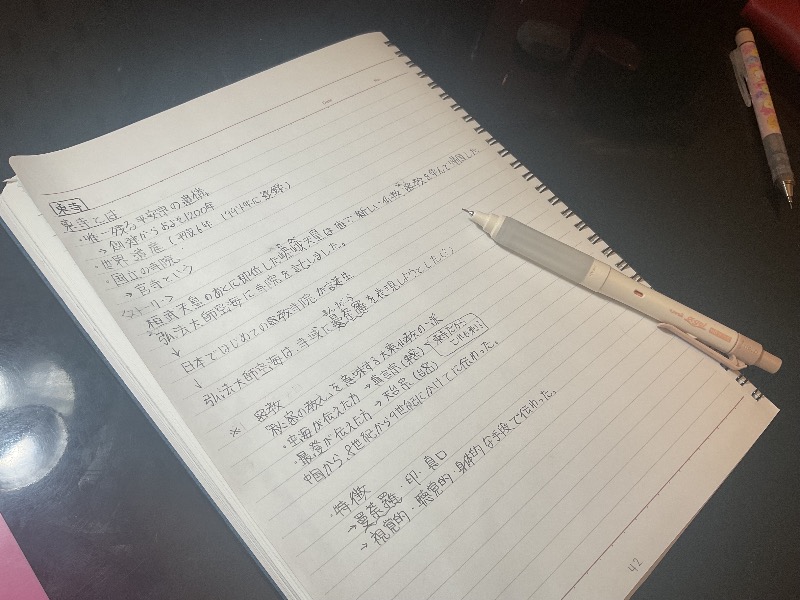 東寺
東寺とは
・唯一残る平安京の遺構。
→創建からおよそ1200年
・世界遺産(平成6年 1994年に登録)
・国立の寺院。
→官寺という
<ストーリー>
桓武天皇のあとに即位した嵯峨天皇は 新しい仏教 密教を学んで帰国した
弘法大師空海に寺院を託しました。
↓
日本ではじめての密教寺院が誕生
↓
弘法大師空海は、寺域に曼荼羅を表現しようとした
※ 密教
「秘密の教え」を意味する大乗仏教の一派
・空海が伝えた方→真言宗(東密)
・最澄が伝えた方→天台宗(台密)
中国から、8世紀から9世紀にかけて に伝わった。
・特徴
→曼荼羅・印・真口
→視覚的・聴覚的・身体的な手段で伝わった。
42